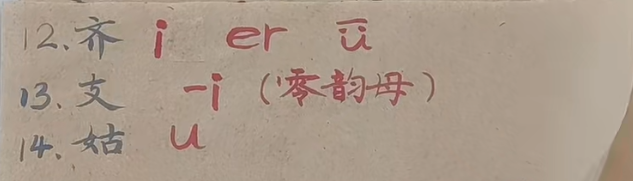 12、齐 i er ū
13、支 -i（零韵母）
14、姑 u